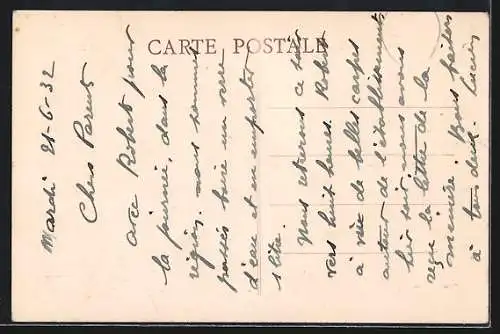 CARTE POSTALE
Mardi 21-6-32
Chers Parents
avec Robert pour
la journée, dans la
région, nous sommes
passés boire un verre
d'eau et en emporter
1 litre.
Nous rentrerons ce soir
vers huit heures. Robert
à vu de belles carpes
autour de l'établissement
hier soir nous avons
reçu la lettre de la
mémère. Bons baisers
à tous deux. Lucien